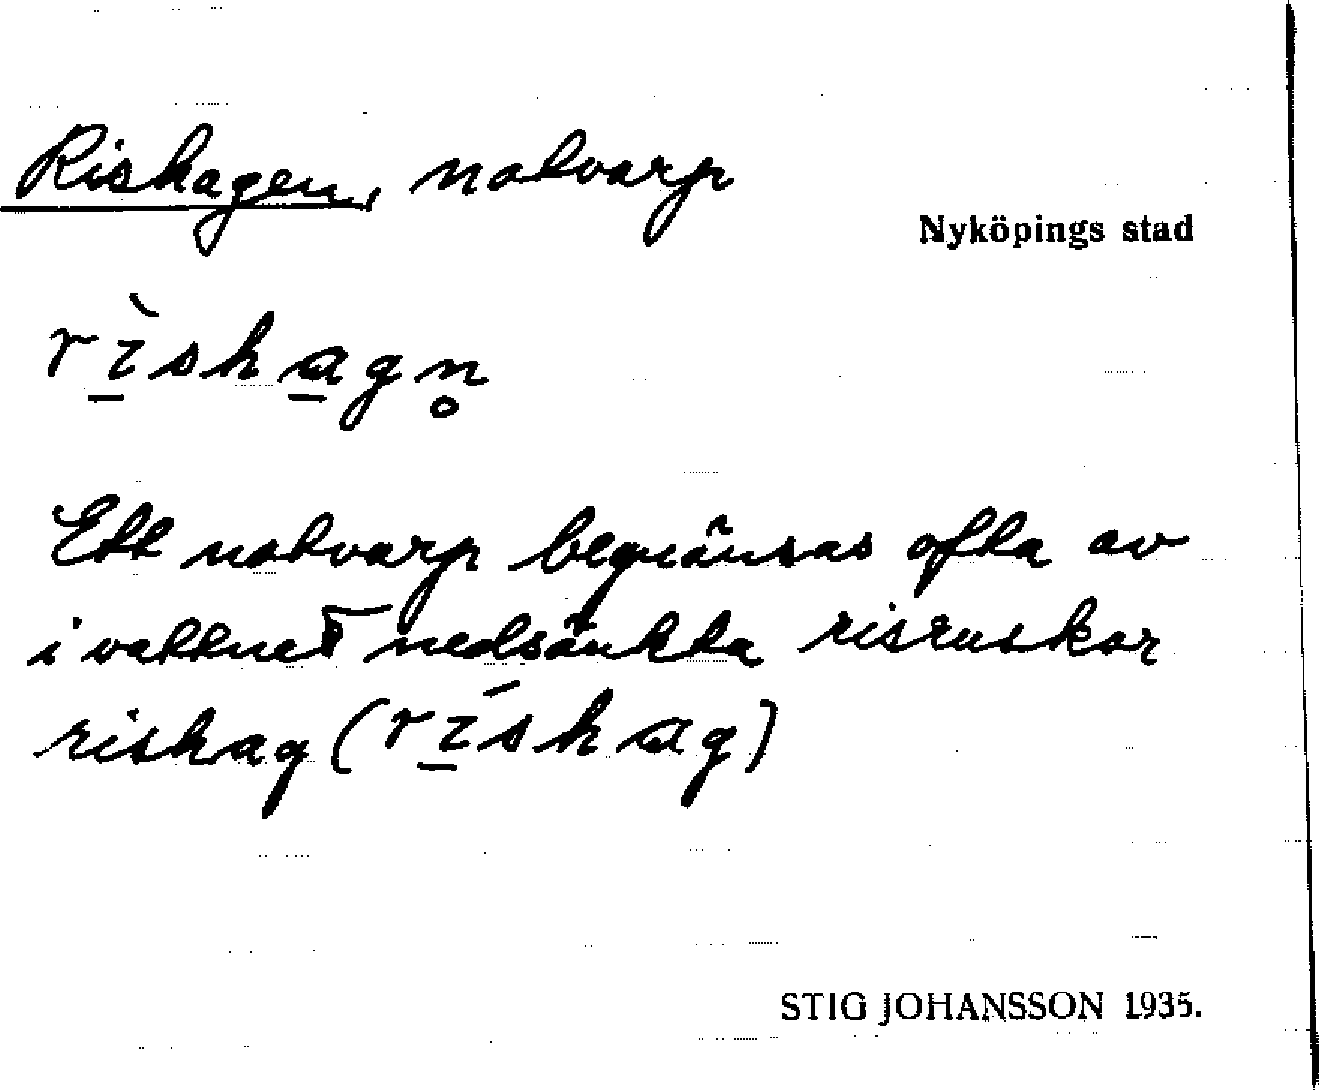 Rishagen, notvarp
Nyköpings stad
rı̱̀sha̱gn̥
Ett notvarp begränsas ofta av
i vattnet nedsänkta risruskor
rishag (rı̱́shag)
STIG JOHANSSON 1935.